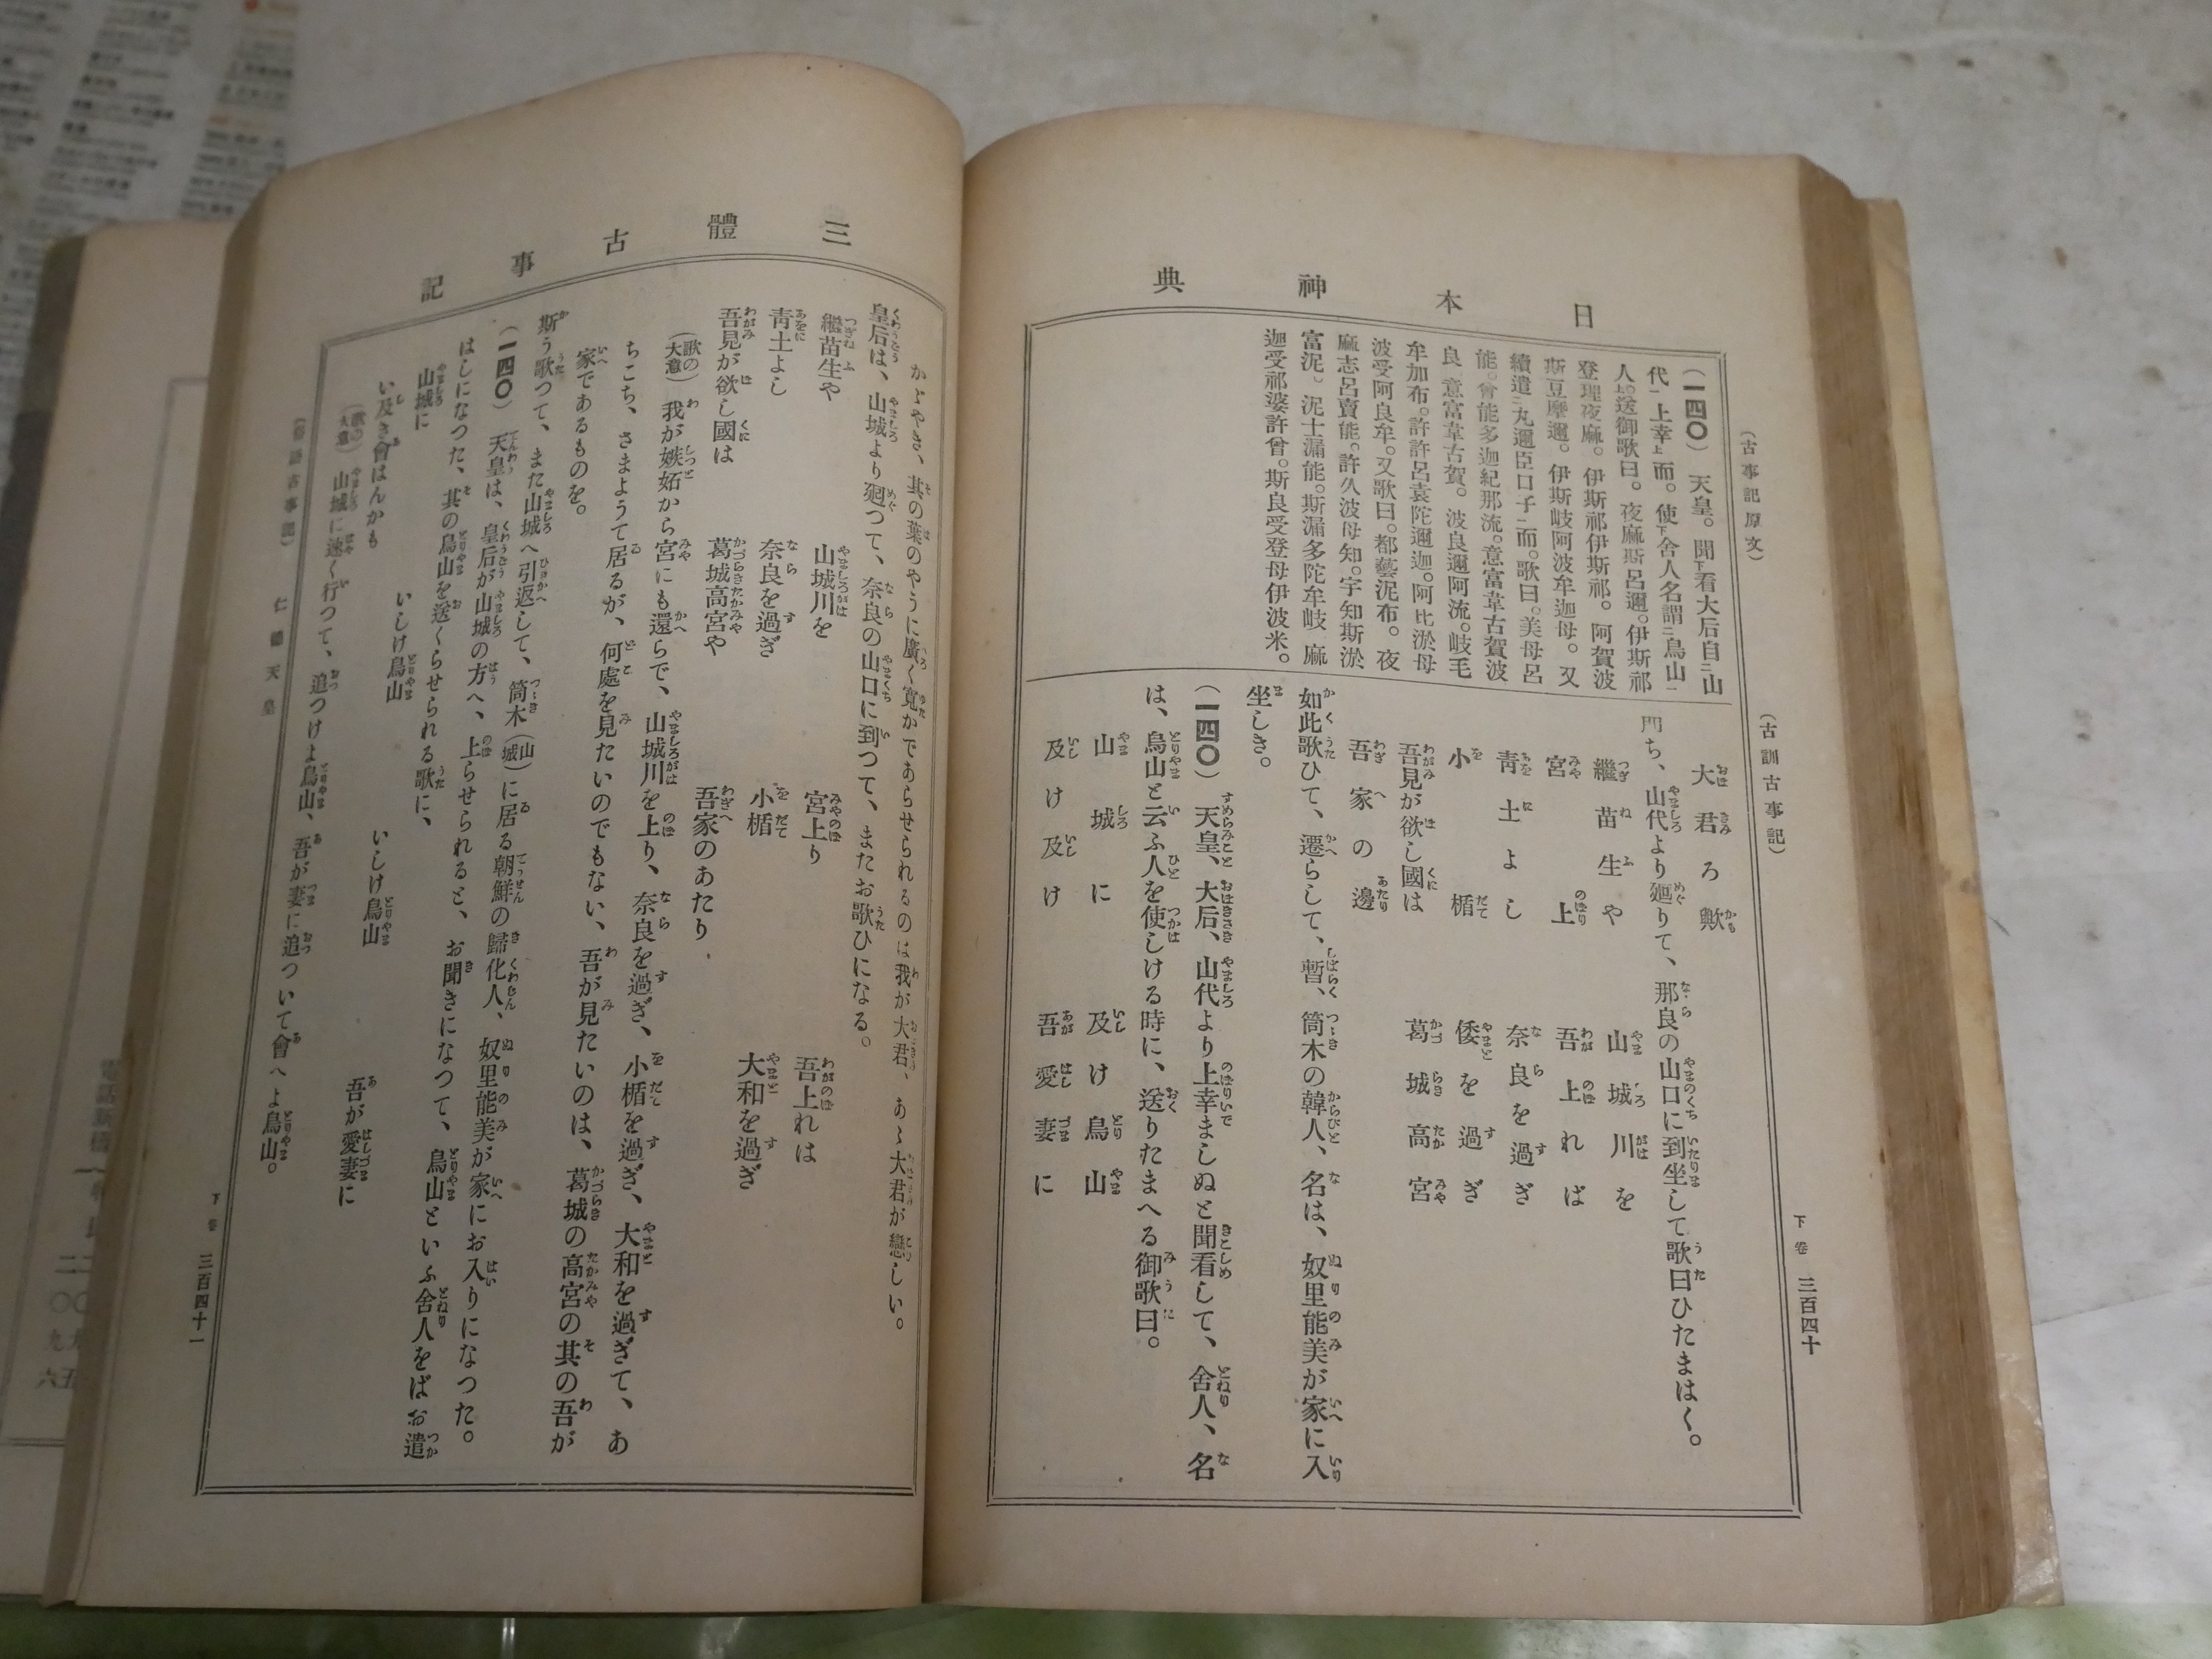 日本神典
(古事記原文)
(一四〇) 天皇。聞㆘看大后自㆓山
代㆒上幸㆖而。使㆘舍人名謂㆓鳥山㆒
人。送御歌曰。夜麻斯呂邇。伊斯祁
登理夜麻。伊斯祁伊斯祁。阿賀波
斯豆摩邇。伊斯岐阿波牟迦母。又
續遣㆓丸邇臣口子㆒而。歌曰。美母呂
能。曾能多迦紀那流。意富韋古賀波
良 意富韋古賀。波良邇阿流。岐毛
牟加布。許許呂袁陀邇迦。阿比淤母
波受阿良牟。又歌曰。都藝泥布。夜
麻志呂賣能。許久波母知。宇知斯淤
富泥。泥士漏能。斯漏多陀牟岐 麻
迦受祁婆許曾。斯良受登母伊波米。
(古訓古事記)
大君ろ歟
門ち、山代より廻りて、那良の山口に到坐して歌曰ひたまはく。
繼苗生や 山城川を
宮上 吾上れば
青土よし 奈良を過ぎ
小楯 倭を過ぎ
吾見が欲し國は 葛城高宮
吾家の邊
如此歌ひて、還らして、暫、筒木の韓人、名は、奴里能美が家に入
坐しき。
(一四〇) 天皇、大后、山代より上幸ましぬと聞看して、舍人、名
は、鳥山と云ふ人を使しける時に、送りたまへる御歌曰。
山城に 及け鳥山
及け及け 吾愛妻に
下卷 三百四十
三體古事記
かゞやき、其の葉のやうに廣く寛かであらせられるのは我が大君、あゝ大君が戀しい。
皇后は、山城より廻つて、奈良の山口に到つて、またお歌ひになる。
繼苗生や 山城川を 宮上り 吾上れは
青土よし 奈良を過ぎ 小楯 大和を過ぎ
吾見が欲し國は 葛城高宮や 吾家のあたり
(歌の大意) 我が嫉妬から宮にも還らで、山城川を上り、奈良を過ぎ、小楯を過ぎ、大和を過ぎて、あ
ちこち、さまようて居るが、何處を見たいのでもない、吾が見たいのは、葛城の高宮の其の吾が
家であるものを。
斯う歌つて、また山城へ引返して、筒木(山城)に居る朝鮮の歸化人、奴里能美が家にお入りになつた。
(一四〇) 天皇は、皇后が山城の方へ、上らせられると、お聞きになつて、鳥山といふ舍人をばお遣
はしになつた、其の鳥山を送くらせられる歌に、
山城に いしけ鳥山 いしけ鳥山 吾が愛妻に
い及き會はんかも
(歌の大意) 山城に速く行つて、追つけよ鳥山、吾が妻に追ついて會へよ鳥山。
仁德天皇
下卷 三百四十一